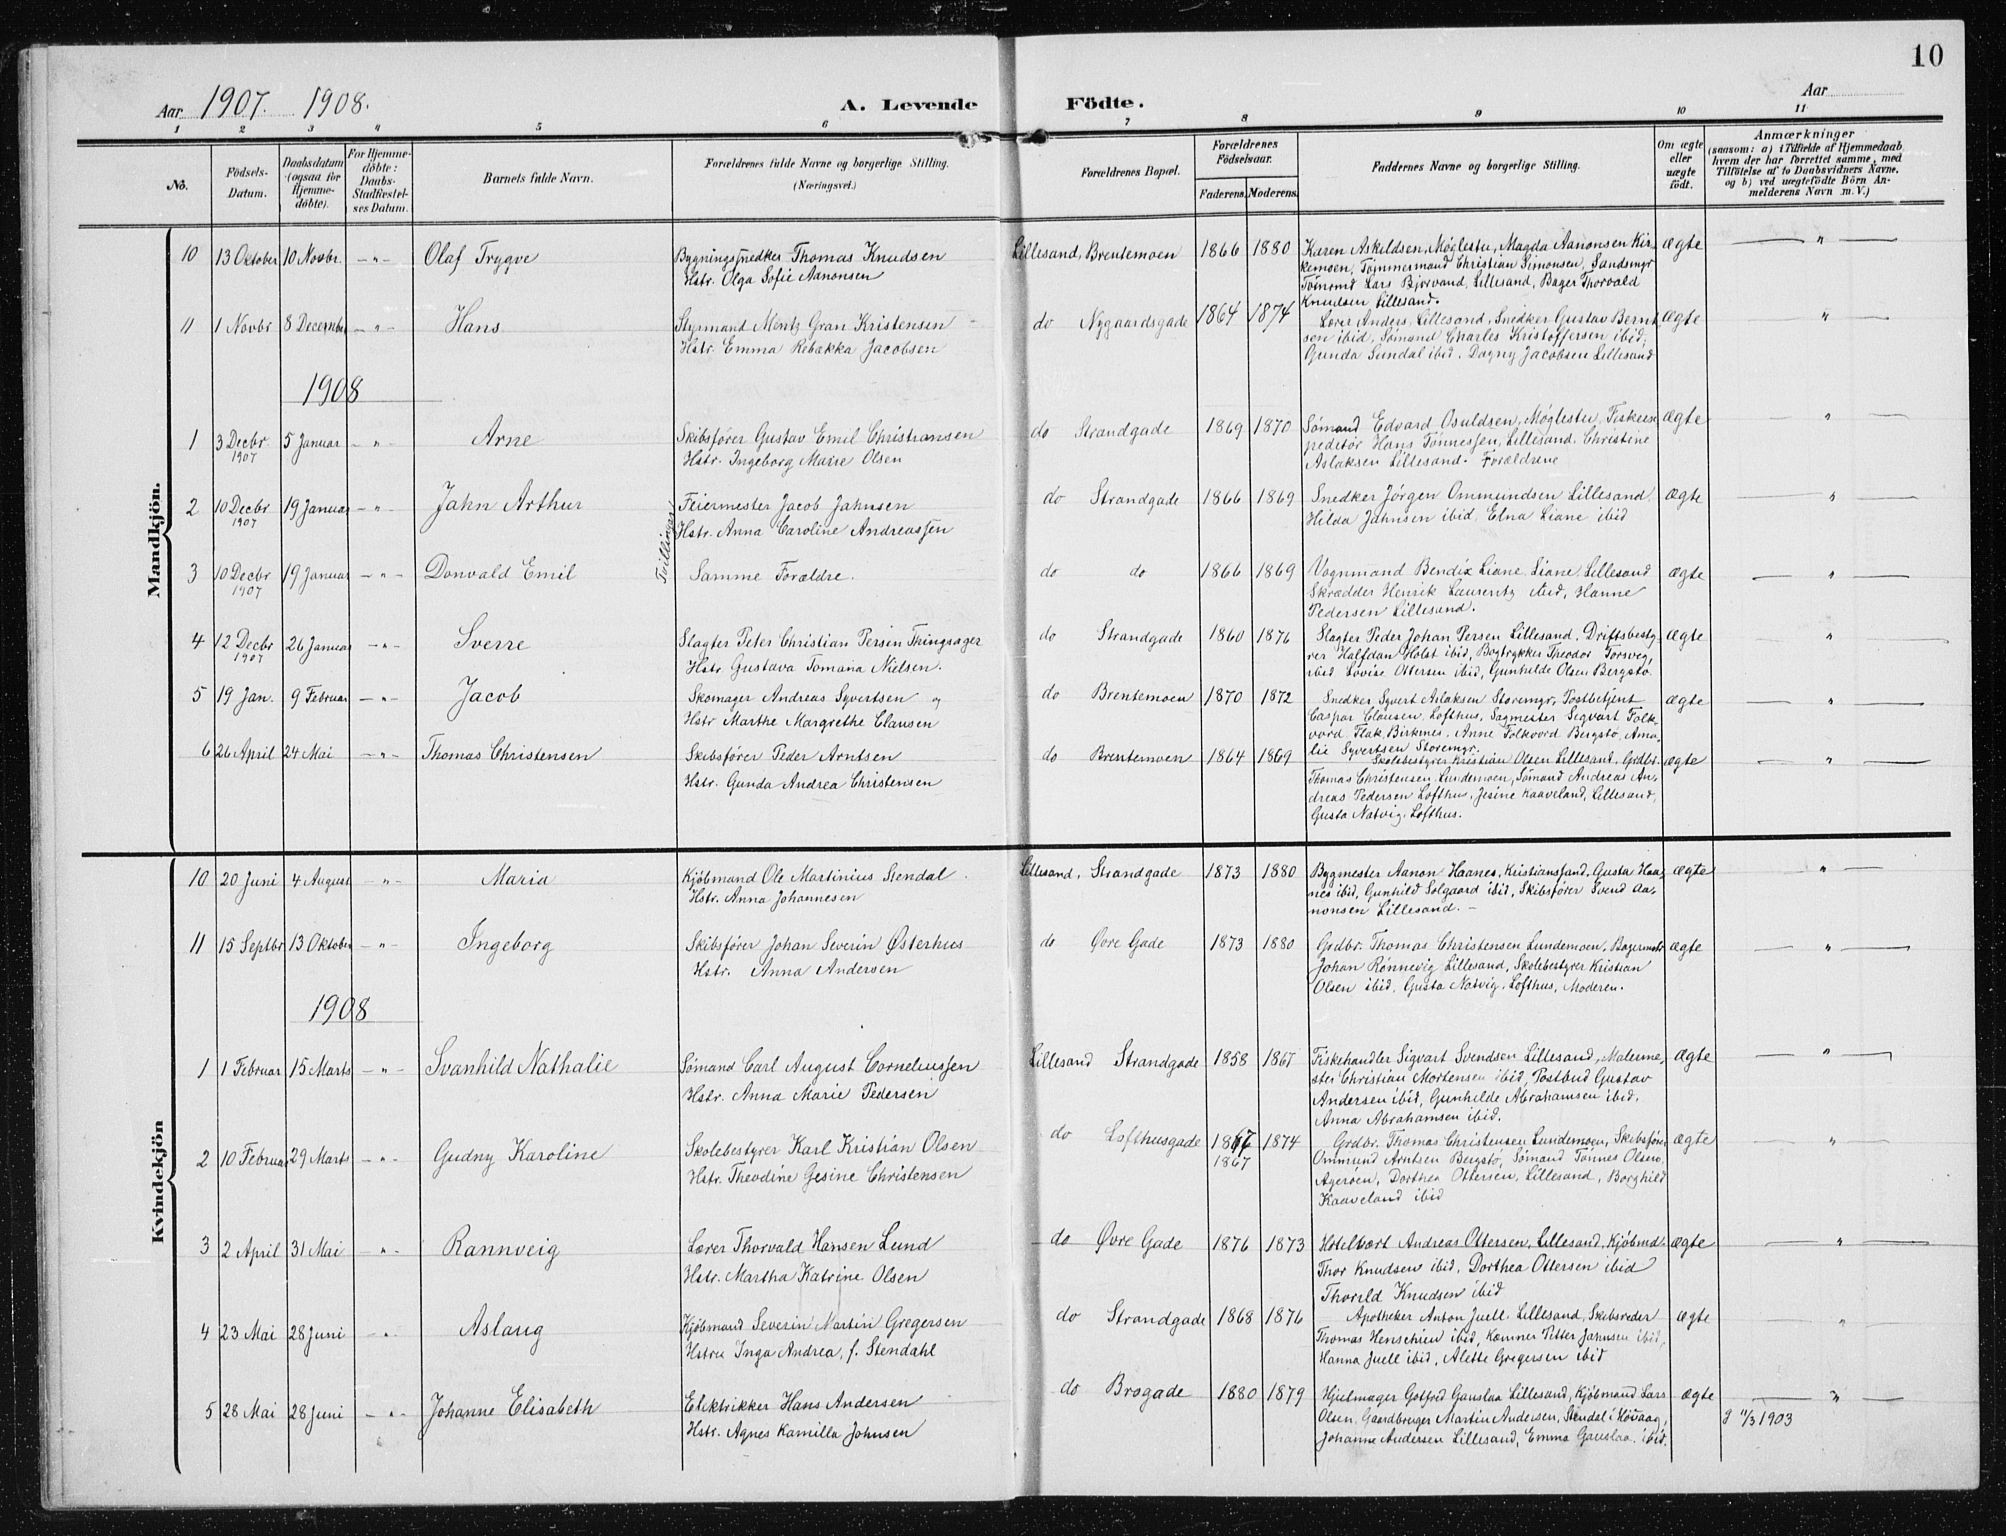 10
Aar 1907. 1908. A. Levende Födte. Aar
1 2 3 4 5 6 7 8 9 10 11
No. Födsels-Datum. Daabsdatum (ogsaa for Hjemmedöbte). For Hjemmedöbte: Daabs-Stadfæstelses Datum. Barnets fulde Navn. Forældrenes fulde Navne og borgerlige Stilling. (Næringsvei.) Forældrenes Bopæl. Forældrenes Födselsaar. Faderens. Moderens. Faddernes Navne og borgerlige Stilling. Om ægte eller uægte födt. Anmærkninger (saasom: a) i Tilfælde af Hjemmedaab, hvem der har forrettet samme, med Tilföielse af to Daabsvidners Navne, og b) ved uægtefödte Börn Anmelderens Navn m. V.)
Mandkjön.
10 13 Oktober 10 Novbr. — " — Olaf Trygve Bygningssnedker Thomas Knudsen Lillesand, Brentemoen 1866 1880 Karen Askildsen, Møglestu, Magda Aanonsen Kir- ægte — " —
Hstr. Olga Sofie Aanonsen kemoen, Tømmermand Christian Simonsen, Sandsmyr
Tømrmd Lars Bjorvand, Lillesand, Bager Thorvald
Knudsen Lillesand.
11 1 Novbr 8 December — " — Hans Styrmand Mentz Gran Kristensen do Nygaardsgade 1864 1874 Lærer Anders, Lillesand, Snedker Gustav Bernt ægte — " —
Hstr. Emma Rebækka Jacobsen sen ibid, Sømand Charles Kristoffersen ibid,
Gunda Sundal ibid. Dagny Jacobsen Lillesand
1908
1 3 Decbr 1907 5 Januar — " — Arne Skibsfører Gustav Emil Christiansen do Strandgade 1869 1870 Sømand Edvard Osuldsen, Møglestu, Fiskeeks ægte — " —
Hstr. Ingeborg Marie Olsen peditør Hans Tønnessen, Lillesand. Christine
Aslaksen Lillesand. Forældrene
2 10 Decbr 1907 19 Januar — " — Jahn Arthur Feiermester Jacob Jahnsen do Strandgade 1866 1869 Snedker Jörgen Ommundsen Lillesand ægte — " —
Hstr. Anna Caroline Andreassen Hilda Jahnsen ibid, Elna Liane ibid
Tvillinger
3 10 Decbr 1907 19 Januar — " — Donvald Emil Samme Forældre. do do 1866 1869 Vognmand Bendix Liane, Liane, Lillesand ægte — " —
Skrædder Henrik Laurentz ibid, Hanne
Pedersen Lillesand.
4 12 Decbr 1907 26 Januar — " — Sverre Slagter Peter Christian Persen Thingsager do Strandgade 1860 1876 Slagter Peder Johan Persen Lillesand. Driftsbesty- ægte — " —
Hstr. Gustava Tomana Nielsen. rer Halfdan Holst ibid, Bogtrykker Theodor Torsvei,
ibid Lovise Ottersen ibid, Gunhilde Olsen Bergstø.
5 19 Jan. 9 Februar — " — Jacob Skomager Andreas Syvertsen og do Brentemoen 1870 1872 Snedker Syvert Aslaksen Storemyr, Postbetjent ægte — " —
Hstr Marthe Margrethe Clausen Caspar Clausen, Lofthus, Sagmester Sigvart Folk-
vord Flak, Birkenes. Anne Folkvord Bergstø, Ama-
lie Syvertsen Storemyr.
6 26 April 24 Mai — " — Thomas Christensen Skibsfører Peder Arntsen do Brentemoen 1864 1869 Skolebestyrer Kristian Olsen Lillesand. Grdbr. ægte — " —
Hstr. Gunda Andrea Christensen Thomas Christensen Lundemoen, Sømand Andreas An-
dreas Pedersen Lofthus, Jesine Kaaveland, Lillesand,
Gusta Natvig, Lofthus.
Kvindekjön
10 20 Juni 4 August — " — Maria Kjöbmand Ole Martinius Stendal. Lillesand, Strandgade 1873 1880 Bygmester Aanon Haanes, Kristianssand, Gusta Haa- ægte — " —
Hstr. Anna Johannesen nes ibid, Gunhild Solgaard ibid, Skibsfører Svend Aa-
nonsen Lillesand. —
11 15 Septbr 13 Oktober — " — Ingeborg Skibsfører Johan Severin Østerhus do Øvre Gade 1873 1880 Grdbr. Thomas Christensen Lundemoen, Bagermstr ægte — " —
Hstr. Anna Andersen Johan Rønnevig Lillesand, Skolebestyrer Kristian
Olsen ibid, Gusta Natvig, Lofthus, Moderen.
1908
1 1 Februar 15 Marts — " — Svanhild Nathalie Sømand Carl August Corneliussen Lillesand Strandgade 1858 1867 Fiskehandler Sigvart Svendsen Lillesand, Malerme- ægte — " —
Hstr. Anna Marie Pedersen ster Christian Mortensen ibid, Postbud Gustav
Andersen ibid, Gunhilde Abrahamsen ibid,
Anna Abrahamsen ibid.
2 10 Februar 29 Marts — " — Gudny Karoline Skolebestyrer Karl Kristian Olsen do Lofthusgade 1867 1867 1874 Grdbr. Thomas Christensen Lundemoen, Skibsfører ægte — " —
Hstr. Theodine Gesine Christensen Ommund Arntsen Bergstø, Sømand Tönnes Olsen,
Agerøen, Dorthea Ottersen, Lillesand, Borghild
Kaaveland ibid
3 2 April 31 Mai — " — Rannveig Lærer Thorvald Hansen Lund do Øvre Gade 1876 1873 Hotelvært Andreas Ottersen, Lillesand, Kjöbmd. ægte — " —
Hstr. Martha Katrine Olsen Thor Knudsen ibid, Dorthea Ottersen ibid
Thorild Knudsen ibid
4 23 Mai 28 Juni — " — Aslaug Kjöbmand Severin Martin Gregersen do Strandgade 1868 1876 Apotheker Anton Juell. Lillesand, Skibsreder ægte — " —
Hstru Inga Andrea, f. Stendahl Thomas Henschien ibid, Kæmner Petter Jahnsen ibid,
Hanna Juell ibid, Alette Gregersen ibid
5 28 Mai 28 Juni — " — Johanne Elisabeth Elektrikker Hans Andersen do Brogade 1880 1879 Hjulmager Gotfred Gauslaa Lillesand, Kjöbmand Lars ægte — " —
Hstr. Agnes Kamilla Johnsen Olsen, Gaardbruger Martin Andersen, Stendal i Høvaag, g 11/3 1903
Johanne Andersen Lillesand, Emma Gauslaa. ibid.